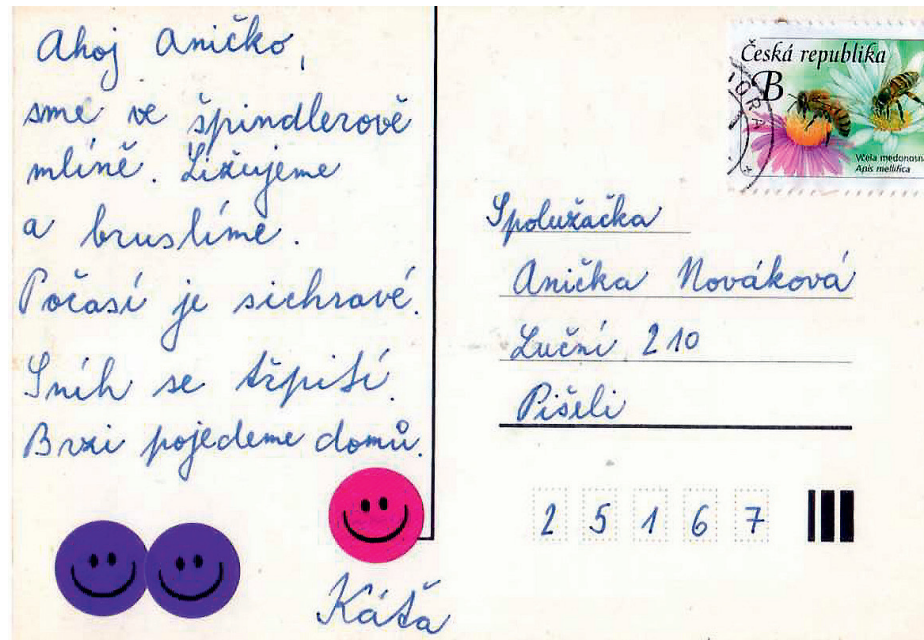 Ahoj Aničko,
sme ve špindlerově
mlíně. Ližujeme
a bruslíme.
Počasí je sichravé.
Sníh se třpití.
Brzi pojedeme domů.
Káťa
Česká republika
B
Včela medonosn
Apis mellifica
Spolužačka
Anička Nováková
Luční 210
Pišeli
2 5 1 6 7